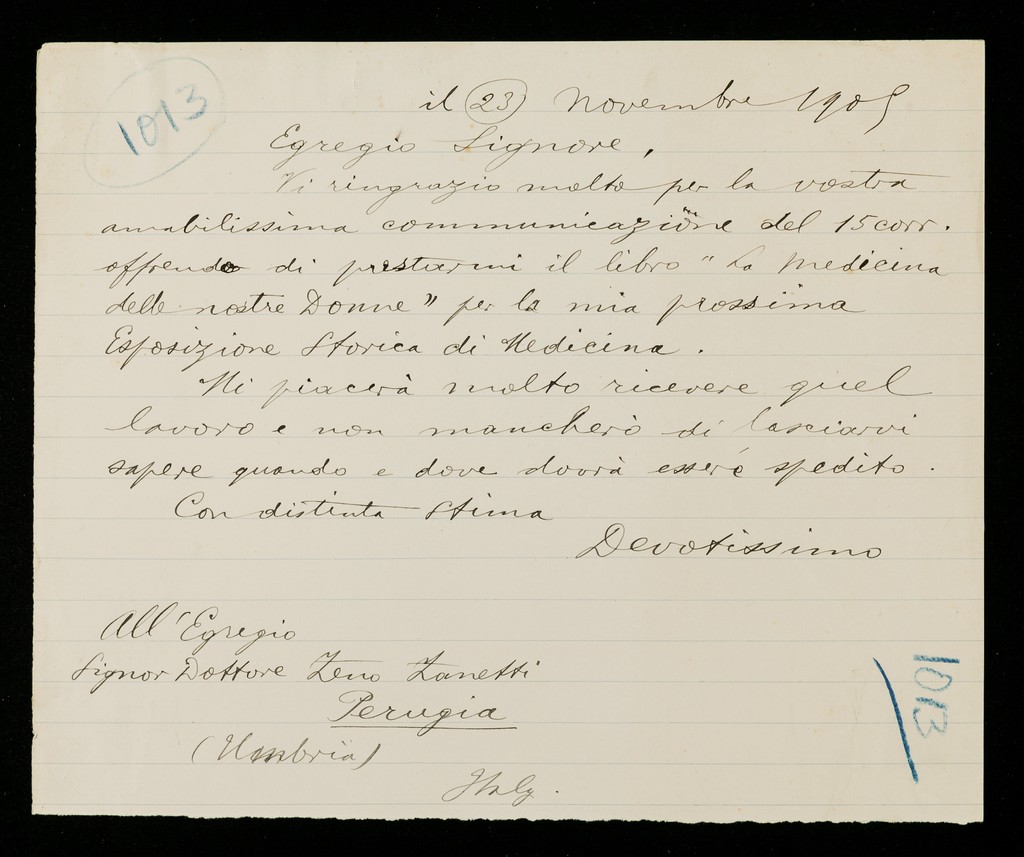 1013
il 23 Novembre 1905
Egregio Signore,
Vi ringrazio molto per la vostra
amabilissima communicazione del 15 corr.
offrendo di prestarmi il libro "La Medicina
delle nostre Donne" per la mia prossima
Esposizione Storica di Medicina.
Mi piacerà molto ricevere quel
lavoro e non mancherò di lasciarvi
sapere quando e dove dovrà essere spedito.
Con distinta stima
Devotissimo
All'Egregio
Signor Dottore Zeno Zanetti
Perugia
(Umbria)
Italy.
1013